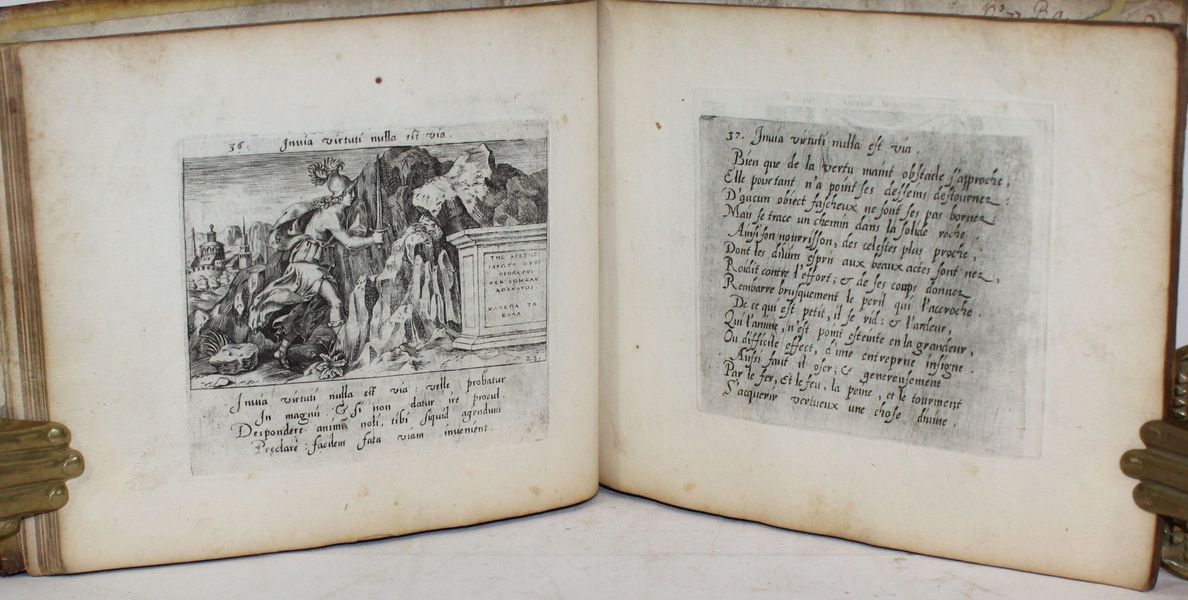 36. Inuia virtuti nulla est via.
ΤΗΣ ΑΡΕΤΗΣ
ΙΔΡΩΤΑ ΘΕΟΙ
ΠΡΟΠΑΡΟΙ
ΘΕΝ ΕΘΗΚΑΝ
ΑΘΑΝΑΤΟΙ
ΧΑΛΕΠΑ ΤΑ
ΚΑΛΑ
Inuia virtuti nulla est via: velle probatur
In magnis & si non datur ire procul.
Despondere animū noli, tibi siquid agendum
Pręclarè: facilem fata viam inuenient.
37. Inuia virtuti nulla est via.
Bien que de la vertu maint obstacle s'approche,
Elle pourtant n'a point ses desseins destournez:
D'aucun obiect fascheux ne sont ses pas bornez:
Mais se trace un chemin dans la solide roche
Ainsi son nourrisson, des celestes plus proche,
Dont les diuins espris aux beaux actes sont nez,
Roidit contre l'effort; & de ses coups donnez
Rembarre brusquement le peril qui l'accroche.
De ce qui est petit, il se rid: & l'ardeur,
Qui l'anime, n'est point esteinte en la grandeur,
Ou difficile effect, d'une entreprise insigne.
Aussi faut il oser; & genereusement
Par le fer, Et le feu, la peine, et le tourment
S'acquerir vertueux une chose diuine.